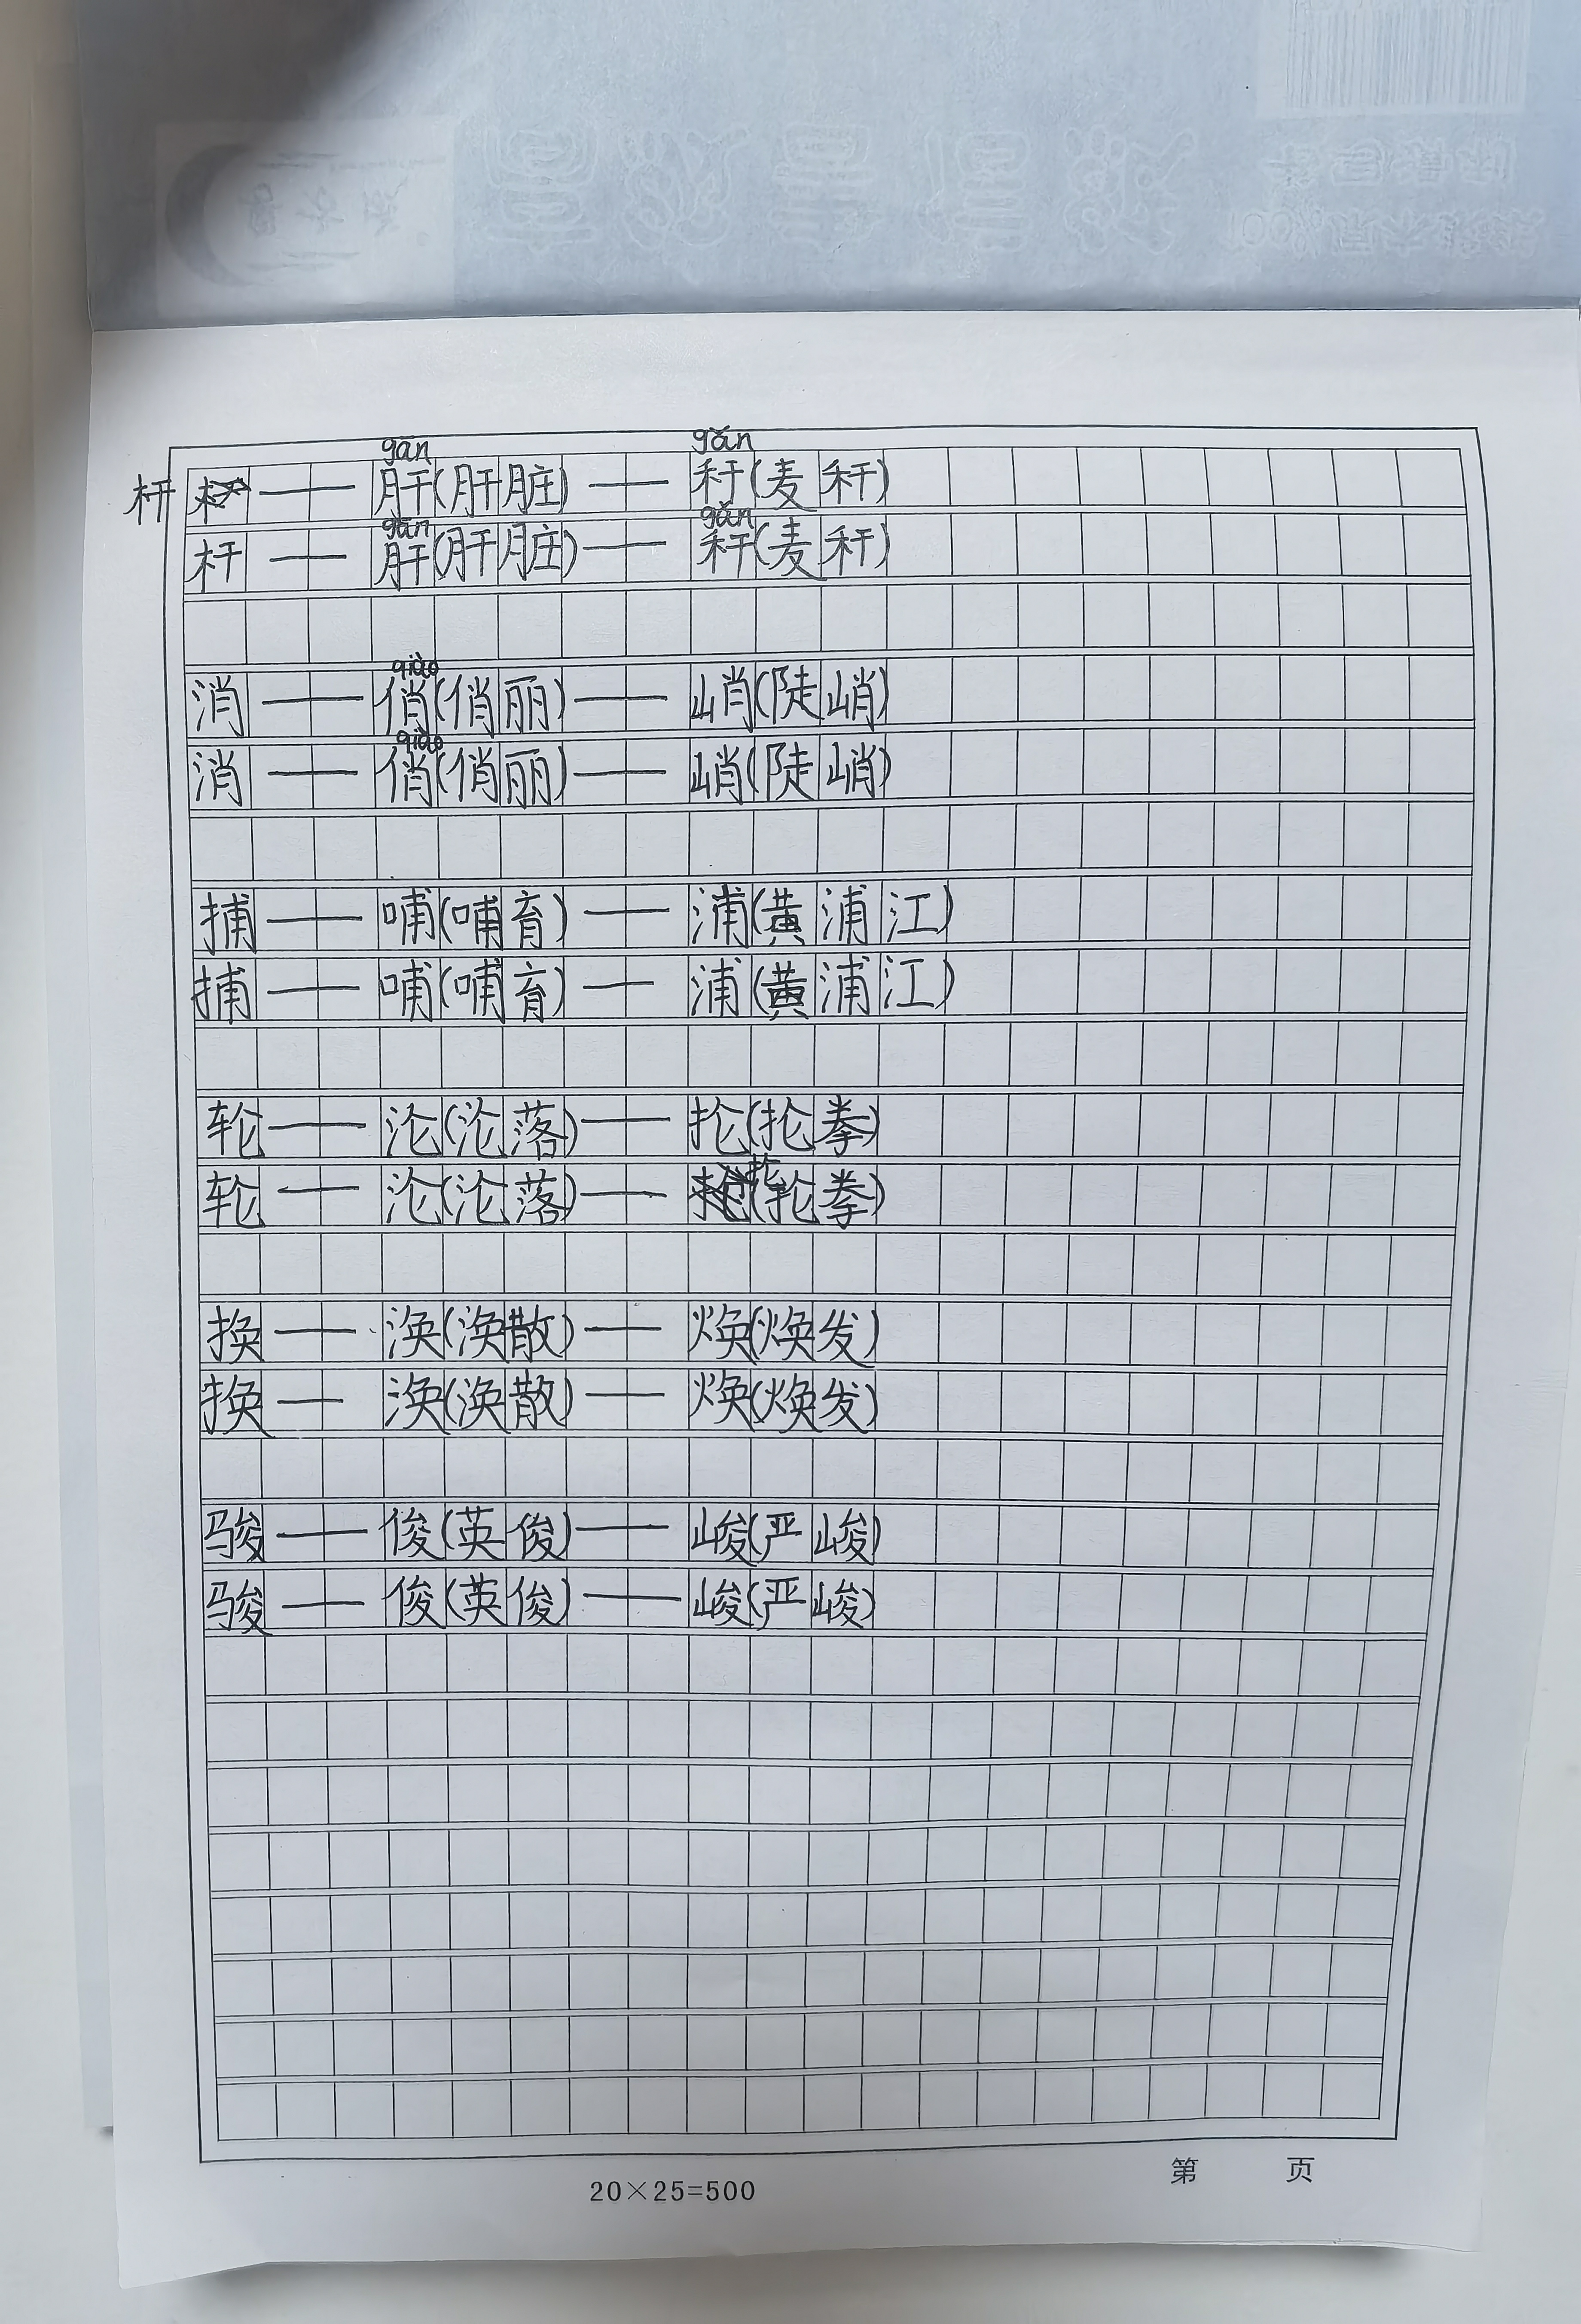 gān gǎn
杆 —— 肝(肝脏) —— 秆(麦秆)
gān gǎn
杆 —— 肝(肝脏) —— 秆(麦秆)
qiào
消 —— 俏(俏丽) —— 峭(陡峭)
qiào
消 —— 俏(俏丽) —— 峭(陡峭)
捕 —— 哺(哺育) —— 浦(黄浦江)
捕 —— 哺(哺育) —— 浦(黄浦江)
轮 —— 沦(沦落) —— 抡(抡拳)
轮 —— 沦(沦落) —— 抡(抡拳)
换 —— 涣(涣散) —— 焕(焕发)
换 —— 涣(涣散) —— 焕(焕发)
骏 —— 俊(英俊) —— 峻(严峻)
骏 —— 俊(英俊) —— 峻(严峻)
20×25=500
第 页